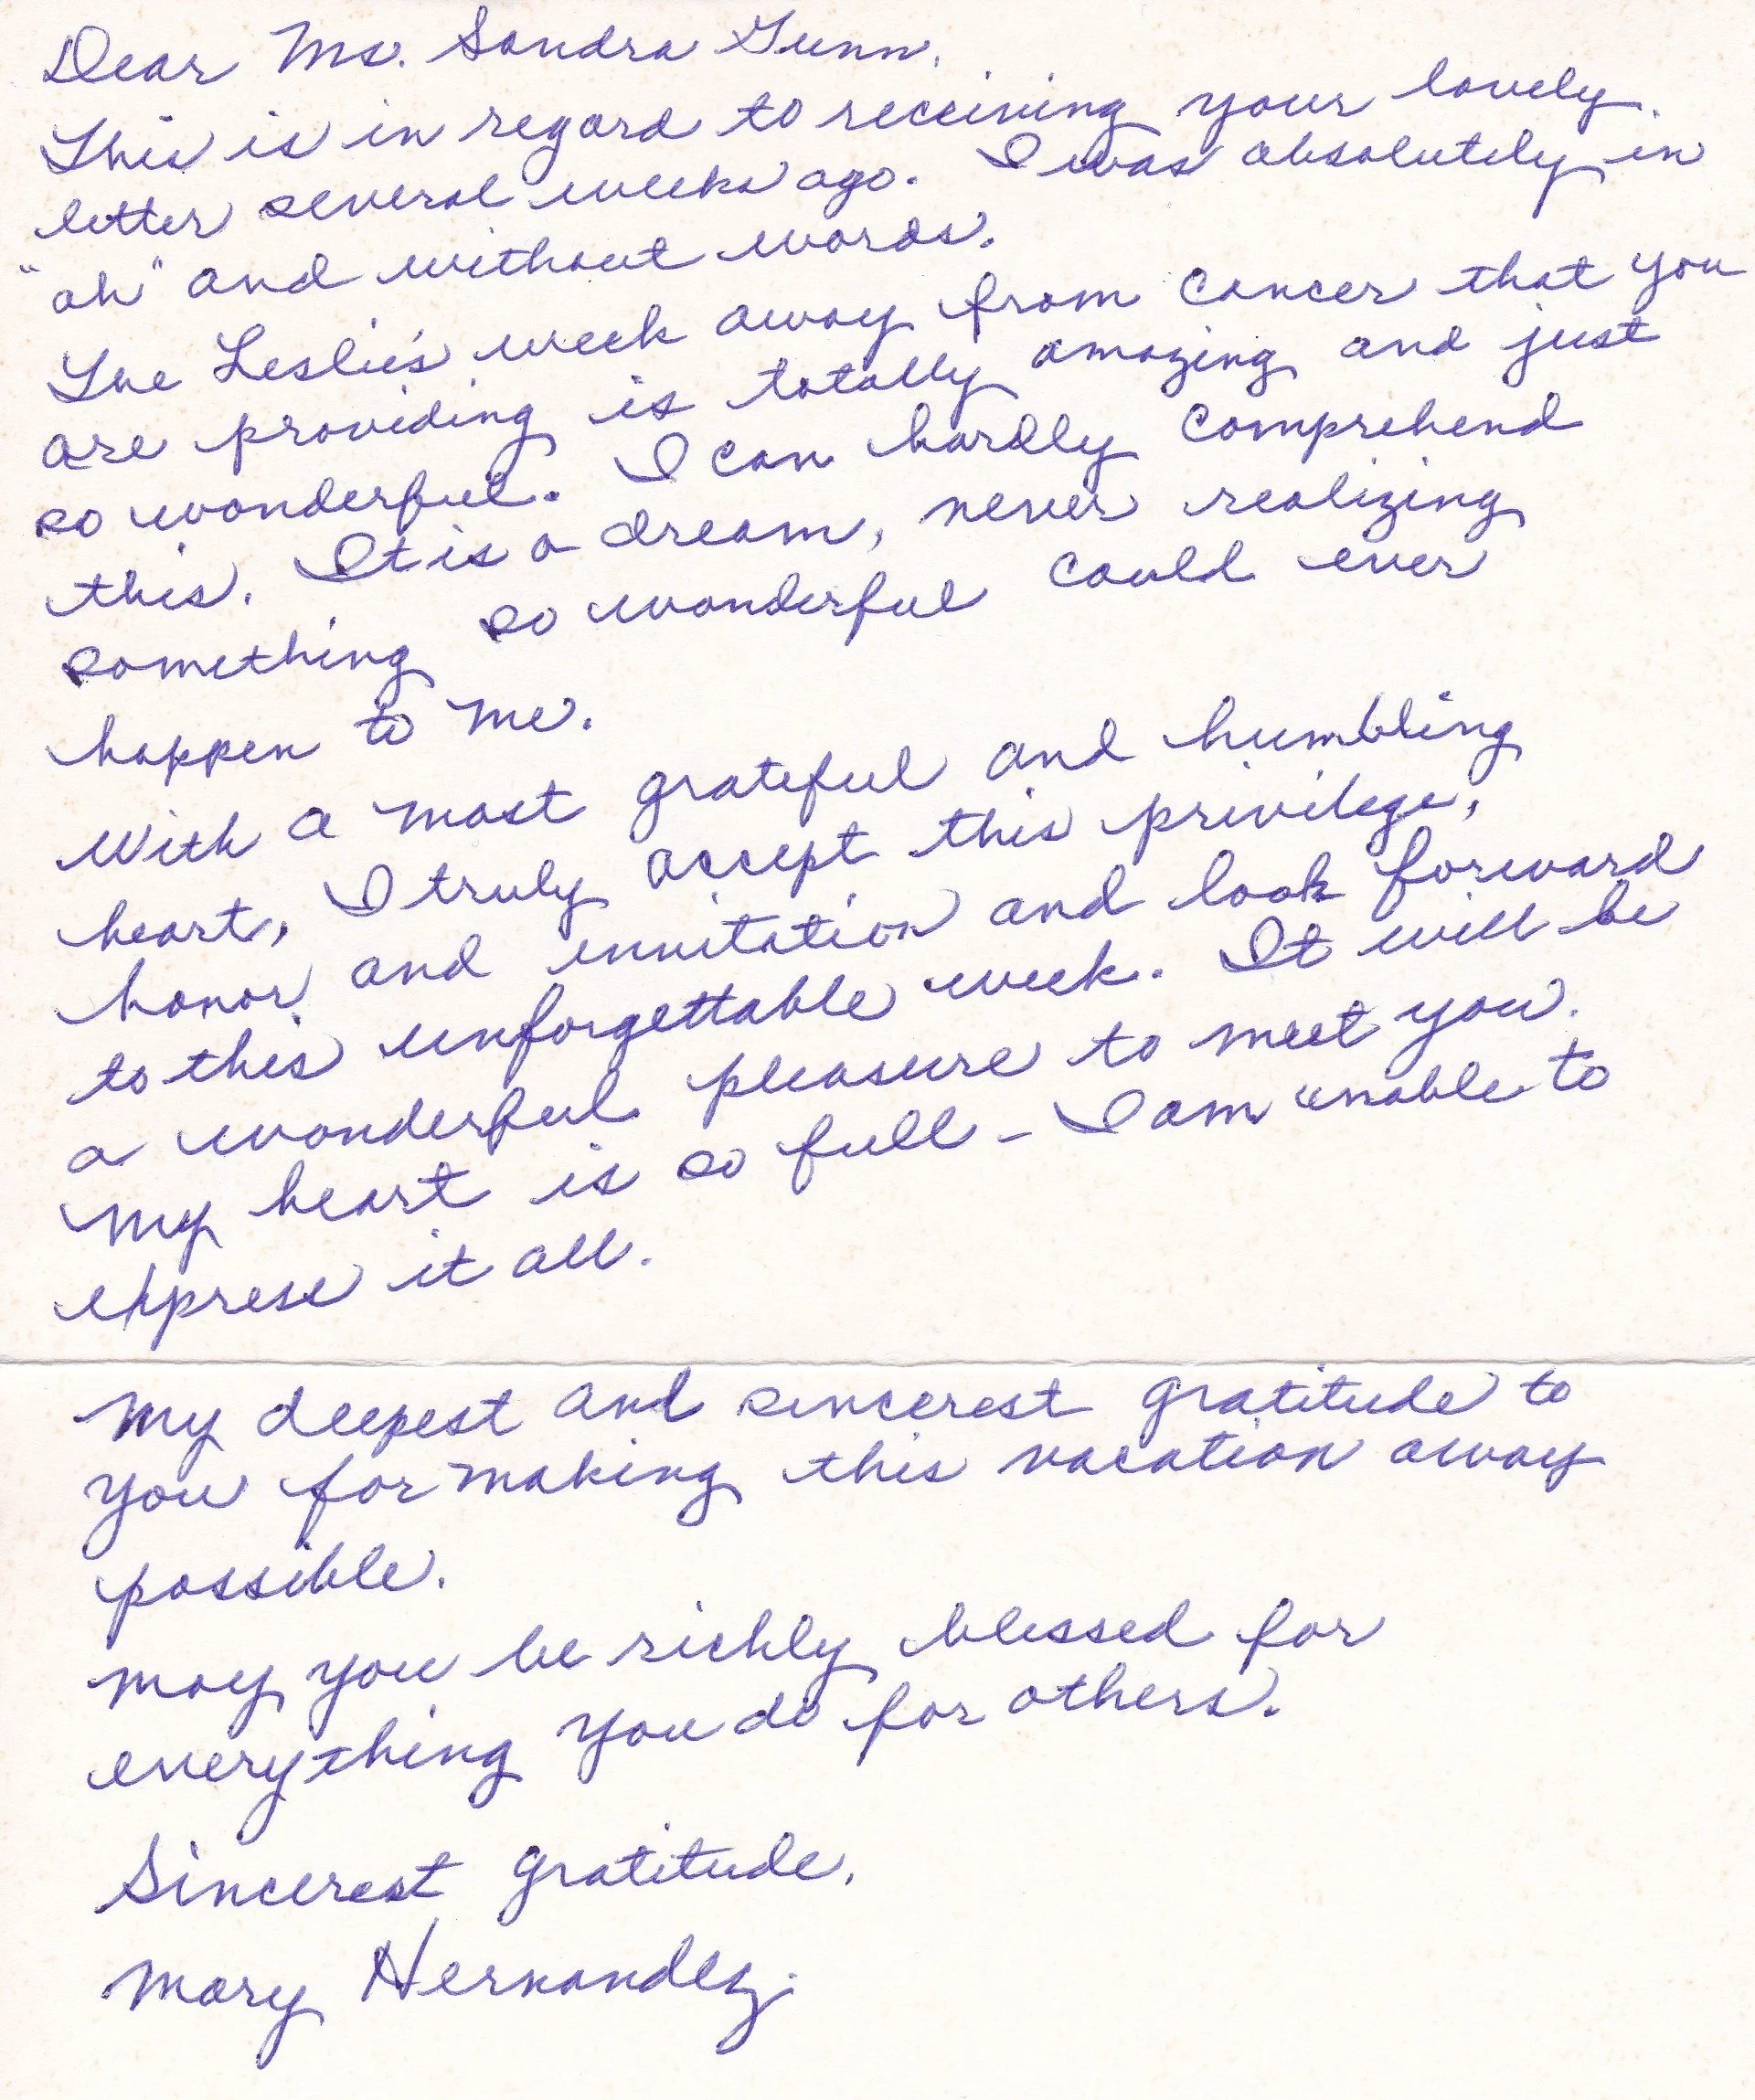 Dear Ms. Sandra Gunn,
This is in regard to receiving your lovely
letter several weeks ago. I was absolutely in
"ah" and without words.
The Leslie's week away from cancer that you
are providing is totally amazing and just
so wonderful. I can hardly comprehend
this. It is a dream, never realizing
something so wonderful could ever
happen to me.
With a most grateful and humbling
heart, I truly accept this privilege,
honor and invitation and look forward
to this unforgettable week. It will be
a wonderful pleasure to meet you.
My heart is so full - I am unable to
express it all.
My deepest and sincerest gratitude to
you for making this vacation away
possible.
May you be richly blessed for
everything you do for others.
Sincerest gratitude,
Mary Hernandez